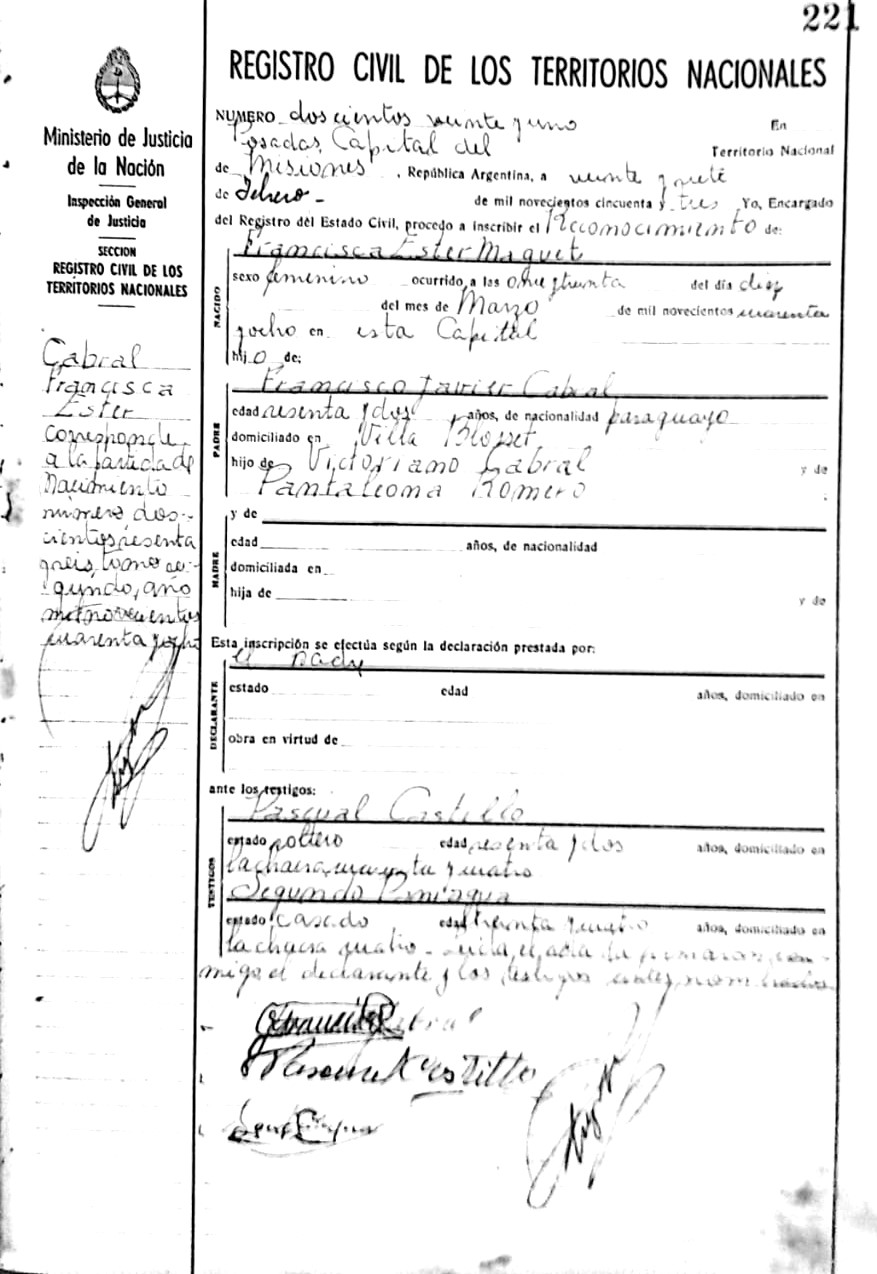 221
REGISTRO CIVIL DE LOS TERRITORIOS NACIONALES
Ministerio de Justicia
de la Nación
Inspección General
de Justicia
SECCION
REGISTRO CIVIL DE LOS
TERRITORIOS NACIONALES
Cabral
Francisca
Ester
corresponde
a la partida de
Nacimiento
número dos-
cientos sesenta
y seis, tomo se-
gundo, año
mil novecientos
cuarenta y ocho
NUMERO doscientos veinte y uno En
Posadas, Capital del Territorio Nacional
de Misiones, República Argentina, a veinte y siete
de Febrero - de mil novecientos cincuenta y tres Yo, Encargado
del Registro del Estado Civil, procedo a inscribir el Reconocimiento de:
NACIDO
Francisca Ester Maquet
sexo femenino ocurrido a las once y treinta del día diez
del mes de Marzo de mil novecientos cuarenta
y ocho en esta Capital
hijo de:
PADRE
Francisco Javier Cabral
edad sesenta y dos años, de nacionalidad paraguayo
domiciliado en Villa Blosset
hijo de Victoriano Cabral y de
Pantaleona Romero
MADRE
y de
edad años, de nacionalidad
domiciliada en
hija de y de
Esta inscripción se efectúa según la declaración prestada por:
DECLARANTE
el padre
estado edad años, domiciliado en
obra en virtud de
ante los testigos:
TESTIGOS
Pascual Castillo
estado soltero edad sesenta y dos años, domiciliado en
la chacra cuarenta y cuatro
Segundo Paniagua
estado casado edad treinta y cuatro años, domiciliado en
la chacra cuatro - Leída el acta la firmaron con-
migo el declarante y los testigos antes nombrados
Cabral
Pascual Castillo